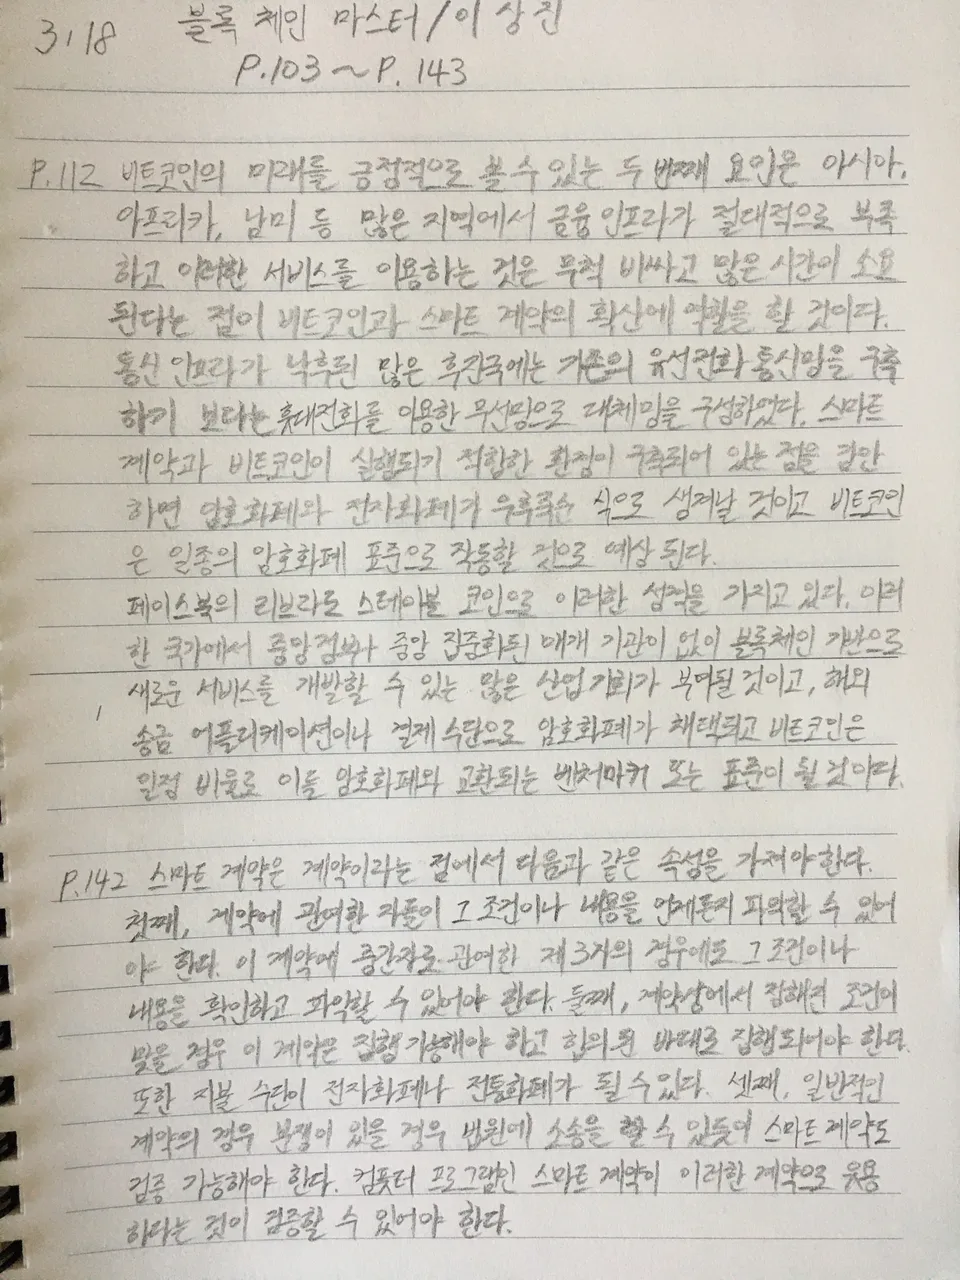 3.18 블록 체인 마스터/이상진
P.103~P.143
P.112 비트코인의 미래를 긍정적으로 볼 수 있는 두 번째 요인은 아시아,
아프리카, 남미 등 많은 지역에서 금융 인프라가 절대적으로 부족
하고 이러한 서비스를 이용하는 것은 무척 비싸고 많은 시간이 소요
된다는 점이 비트코인과 스마트 계약의 확산에 역할을 할 것이다.
통신 인프라가 낙후된 많은 후진국에는 기존의 유선전화 통신망을 구축
하기 보다는 휴대전화를 이용한 무선망으로 대체망을 구성하였다. 스마트
계약과 비트코인이 실행되기 적합한 환경이 구축되어 있는 점을 감안
하면 암호화폐와 전자화폐가 우후죽순 식으로 생겨날 것이고 비트코인
은 일종의 암호화폐 표준으로 작동할 것으로 예상 된다.
페이스북의 리브라도 스테이블 코인으로 이러한 성격을 가지고 있다. 이러
한 국가에서 중앙정부나 중앙 집중화된 매개 기관이 없이 블록체인 기반으로
새로운 서비스를 개발할 수 있는 많은 산업 기회가 부여될 것이고, 해외
송금 어플리케이션이나 결제 수단으로 암호화폐가 채택되고 비트코인은
일정 비율로 이들 암호화폐와 교환되는 벤치마커 또는 표준이 될 것이다.
P.142 스마트 계약은 계약이라는 점에서 다음과 같은 속성을 가져야 한다.
첫째, 계약에 관여한 자들이 그 조건이나 내용을 언제든지 파악할 수 있어
야 한다. 이 계약에 중간자로 관여한 제3자의 경우에도 그 조건이나
내용을 확인하고 파악할 수 있어야 한다. 둘째, 계약상에서 정해진 조건이
맞을 경우 이 계약은 집행 가능해야 하고 합의 된 바대로 집행되어야 한다.
또한 지불 수단이 전자화폐나 전통화폐가 될 수 있다. 셋째, 일반적인
계약의 경우 분쟁이 있을 경우 법원에 소송을 할 수 있듯이 스마트 계약도
검증 가능해야 한다. 컴퓨터 프로그램인 스마트 계약이 이러한 계약으로 유용
하다는 것이 검증할 수 있어야 한다.